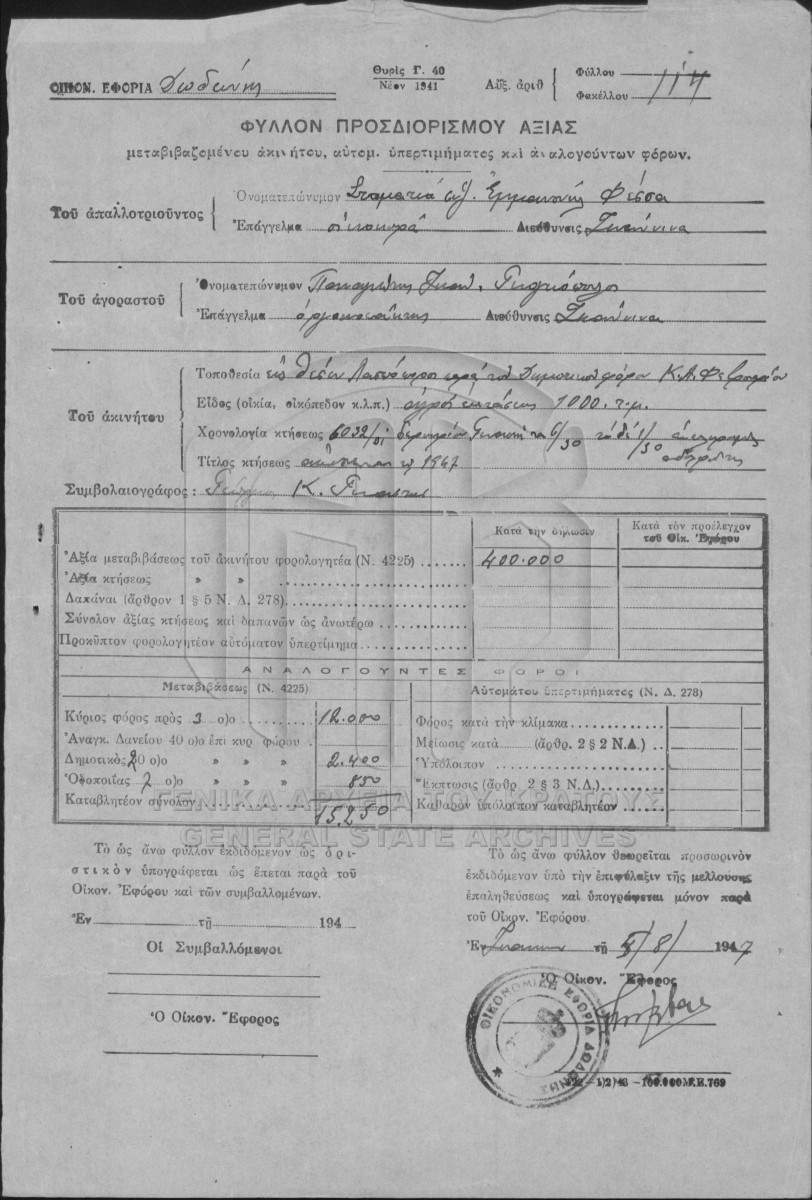 ΟΙΚΟΝ. ΕΦΟΡΙΑ Δωδώνης
Θυρὶς Γ. 40
Νέον 1941
Αὔξ. ἀριθ
Φύλλου
Φακέλλου 114
ΦΥΛΛΟΝ ΠΡΟΣΔΙΟΡΙΣΜΟΥ ΑΞΙΑΣ
μεταβιβαζομένου ἀκινήτου, αὐτομ. ὑπερτιμήματος καὶ ἀναλογούντων φόρων.
Τοῦ ἀπαλλοτριοῦντος
Ὀνοματεπώνυμον Σταματιά συζ. Ἐμμανουήλ Φέσσα
Ἐπάγγελμα οἰκοκυρά Διεύθυνσις Ἰωάννινα
Τοῦ ἀγοραστοῦ
Ὀνοματεπώνυμον Παναγιώτης
Ἐπάγγελμα Διεύθυνσις Ἰωάννινα
Τοῦ ἀκινήτου
Τοποθεσία εἰς θέσιν παρά τοῦ Κ.Α.
Εἶδος (οἰκία, οἰκόπεδον κ.λ.π.) ἀγρός ἐκτάσεως 1000 τ.μ.
Χρονολογία κτήσεως 6032/
Τίτλος κτήσεως
Συμβολαιογράφος : Κ.
Κατὰ τὴν δήλωσιν
Κατὰ τὸν προέλεγχον τοῦ Οἰκ. Ἐφόρου
Ἀξία μεταβιβάσεως τοῦ ἀκινήτου φορολογητέα (Ν. 4225) 400.000
Ἀξία κτήσεως » »
Δαπάναι (ἄρθρον 1 § 5 Ν. Δ. 278)
Σύνολον ἀξίας κτήσεως καὶ δαπανῶν ὡς ἀνωτέρω
Προκῦπτον φορολογητέον αὐτόματον ὑπερτίμημα
ΑΝΑΛΟΓΟΥΝΤΕΣ ΦΟΡΟΙ
Μεταβιβάσεως (Ν. 4225)
Αὐτομάτου ὑπερτιμήματος (Ν. Δ. 278)
Κύριος φόρος πρὸς 3 ο)ο 12.000
Ἀναγκ. Δανείου 40 ο)ο ἐπὶ κυρ φόρου
Δημοτικὸς 20 ο)ο » » » 2.400
Ὁδοποιΐας 7 ο)ο » » » 850
Καταβλητέον σύνολον 15.250
Φόρος κατὰ τὴν κλίμακα
Μείωσις κατὰ (ἄρθρ. 2 § 2 Ν.Δ.)
Ὑπόλοιπον
Ἔκπτωσις (ἄρθρ. 2 § 3 Ν.Δ.)
Καθαρὸν ὑπόλοιπον καταβλητέον
ΓΕΝΙΚΑ ΑΡΧΕΙΑ ΤΟΥ ΚΡΑΤΟΥΣ
GENERAL STATE ARCHIVES
Τὸ ὡς ἄνω φύλλον ἐκδιδόμενον ὡς ὁρι-
στικὸν ὑπογράφεται ὡς ἕπεται παρὰ τοῦ
Οἰκον. Ἐφόρου καὶ τῶν συμβαλλομένων.
Ἐν τῇ 194
Οἱ Συμβαλλόμενοι
Ὁ Οἰκον. Ἔφορος
Τὸ ὡς ἄνω φύλλον θεωρεῖται προσωρινὸν
ἐκδιδόμενον ὑπὸ τὴν ἐπιφύλαξιν τῆς μελλούσης
ἐπαληθεύσεως καὶ ὑπογράφεται μόνον παρὰ
τοῦ Οἰκον. Ἐφόρου.
Ἐν τῇ 8/ 1947
Ὁ Οἰκον. Ἔφορος
ΟΙΚΟΝΟΜΙΚΗ ΕΦΟΡΙΑ ΔΩΔΩΝΗΣ